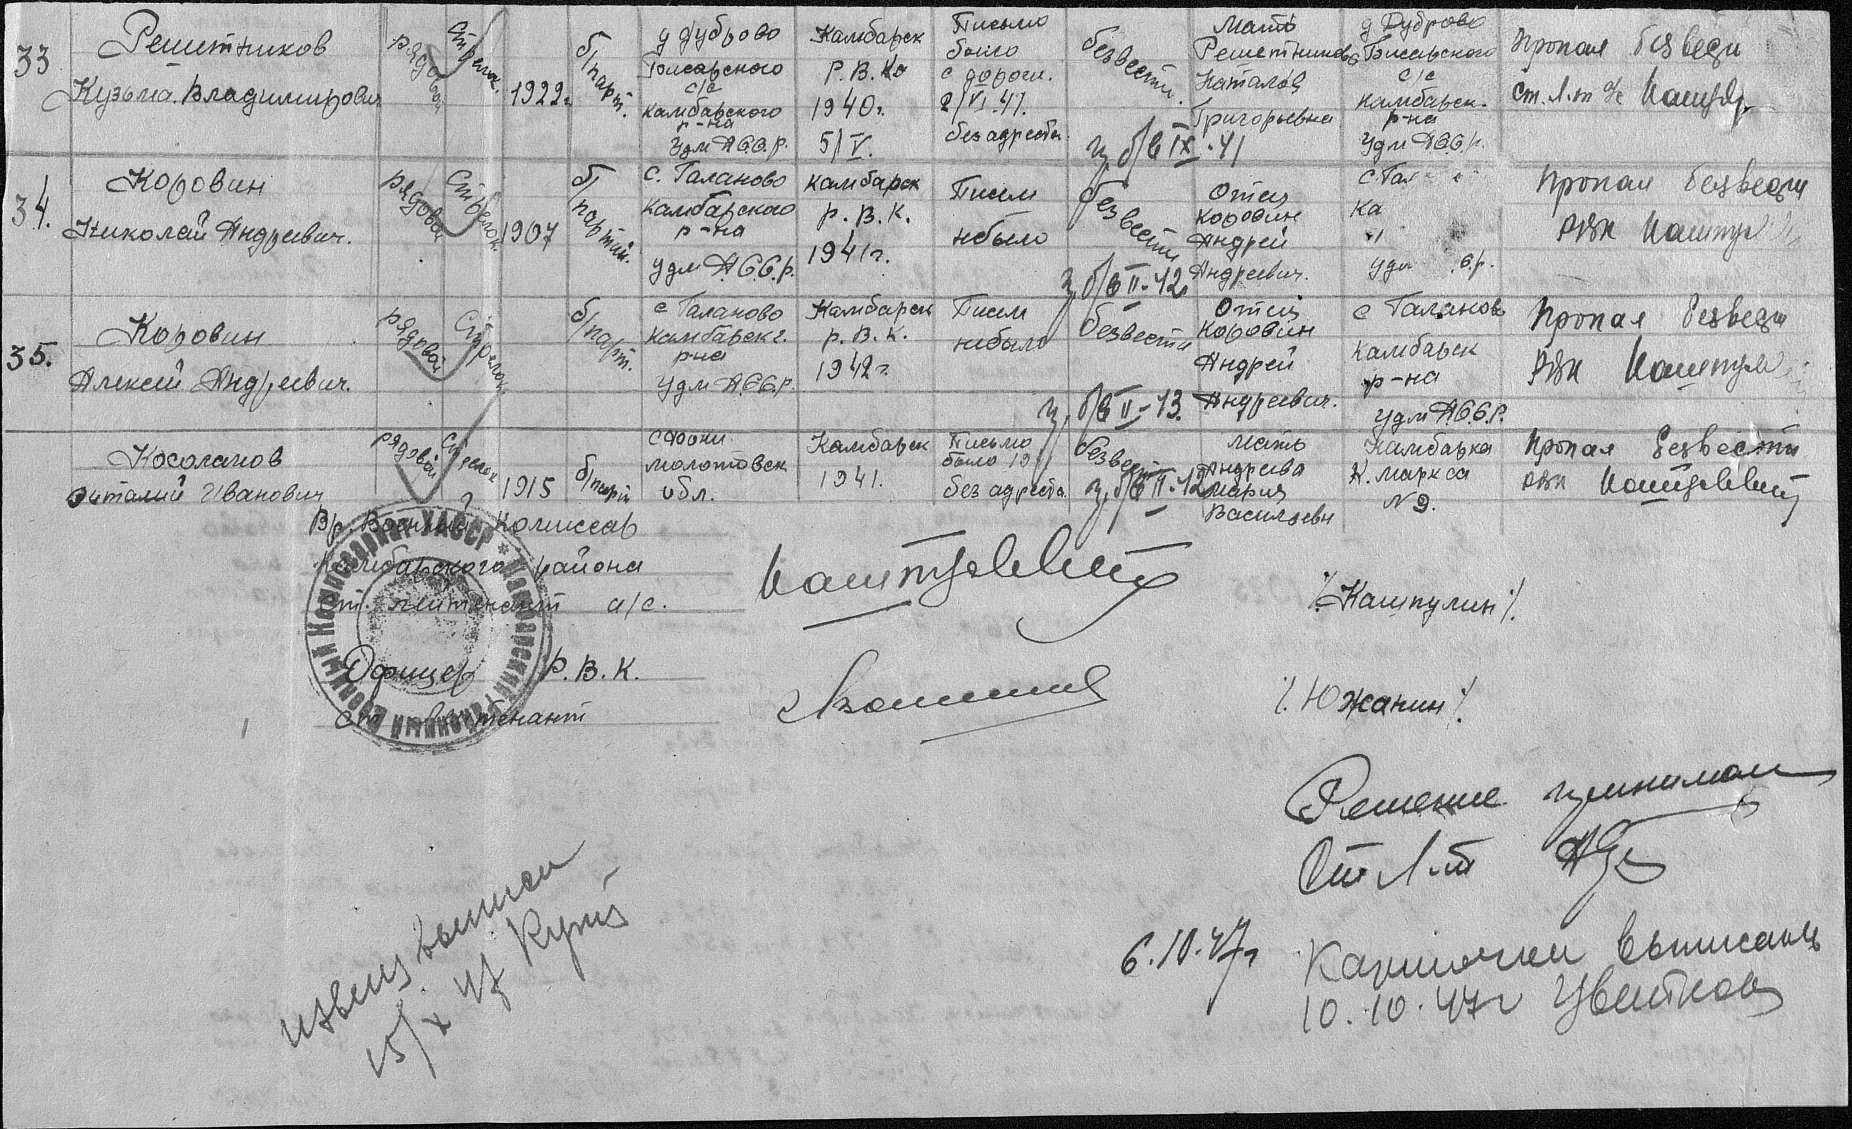 33
Решетников
Кузьма Владимирович
рядовой
стрелок.
1922г.
б/парт.
д Дуброво
с/с
Камбарского
р-на
Удм АССР.
Камбарск
Р.В.Ко
1940г.
5/V.
Письмо
было
с дороги.
2/VI.41.
без адреста
безвести.
з, б/в IX-41
Мать
Решетникова
Наталья
Григорьевна
д Дуброво
с/с
Камбарск.
р-на
Удм АССР.
Пропал безвести
Ст. Л-т
34.
Коровин
Николай Андреевич.
рядовой
стрелок
1907
б/партий.
с. Галаново
Камбарского
р-на
удм АССР.
Камбарск
Р.В.К.
1941г.
Писем
небыло
безвести
з, б/в II-42
Отец
Коровин
Андрей
Андреевич.
с Гал
Ка
Удм .с.р.
Пропал безвести
РВК
35.
Коровин
Алексей Андреевич.
рядовой
стрелок
б/парт.
с Галаново
Камбарск.
р-на
Удм АССР.
Камбарск
Р.В.К.
1942г.
Писем
небыло
безвести
з, б/в II-43.
Отец
Коровин
Андрей
Андреевич.
с Галаново
Камбарск
р-на
Удм АССР.
Пропал безвести
РВК
Косоланов
Виталий Иванович
рядовой
стрелок
1915
б/парт
Молотовск
обл.
Камбарск
1941.
Письмо
было
без адреста
безвест
з, б/в II-42
Мать
Андреева
Мария
Васильевн
Камбарка
К. Маркса
N 9.
Пропал безвести
РВК
Вр. Военный Комиссар
Камбарского района
ст. лейтенант а/с.
/Кашпулин/.
Офицер Р.В.К.
ст лейтенант
/Южанин/.
Камбарский районный военный комиссариат УАССР
Решение принимал
Ст Л-т
6.10.47г
Карточки выписаны
10.10.47г Цветков
извещ выписал
15/X 47